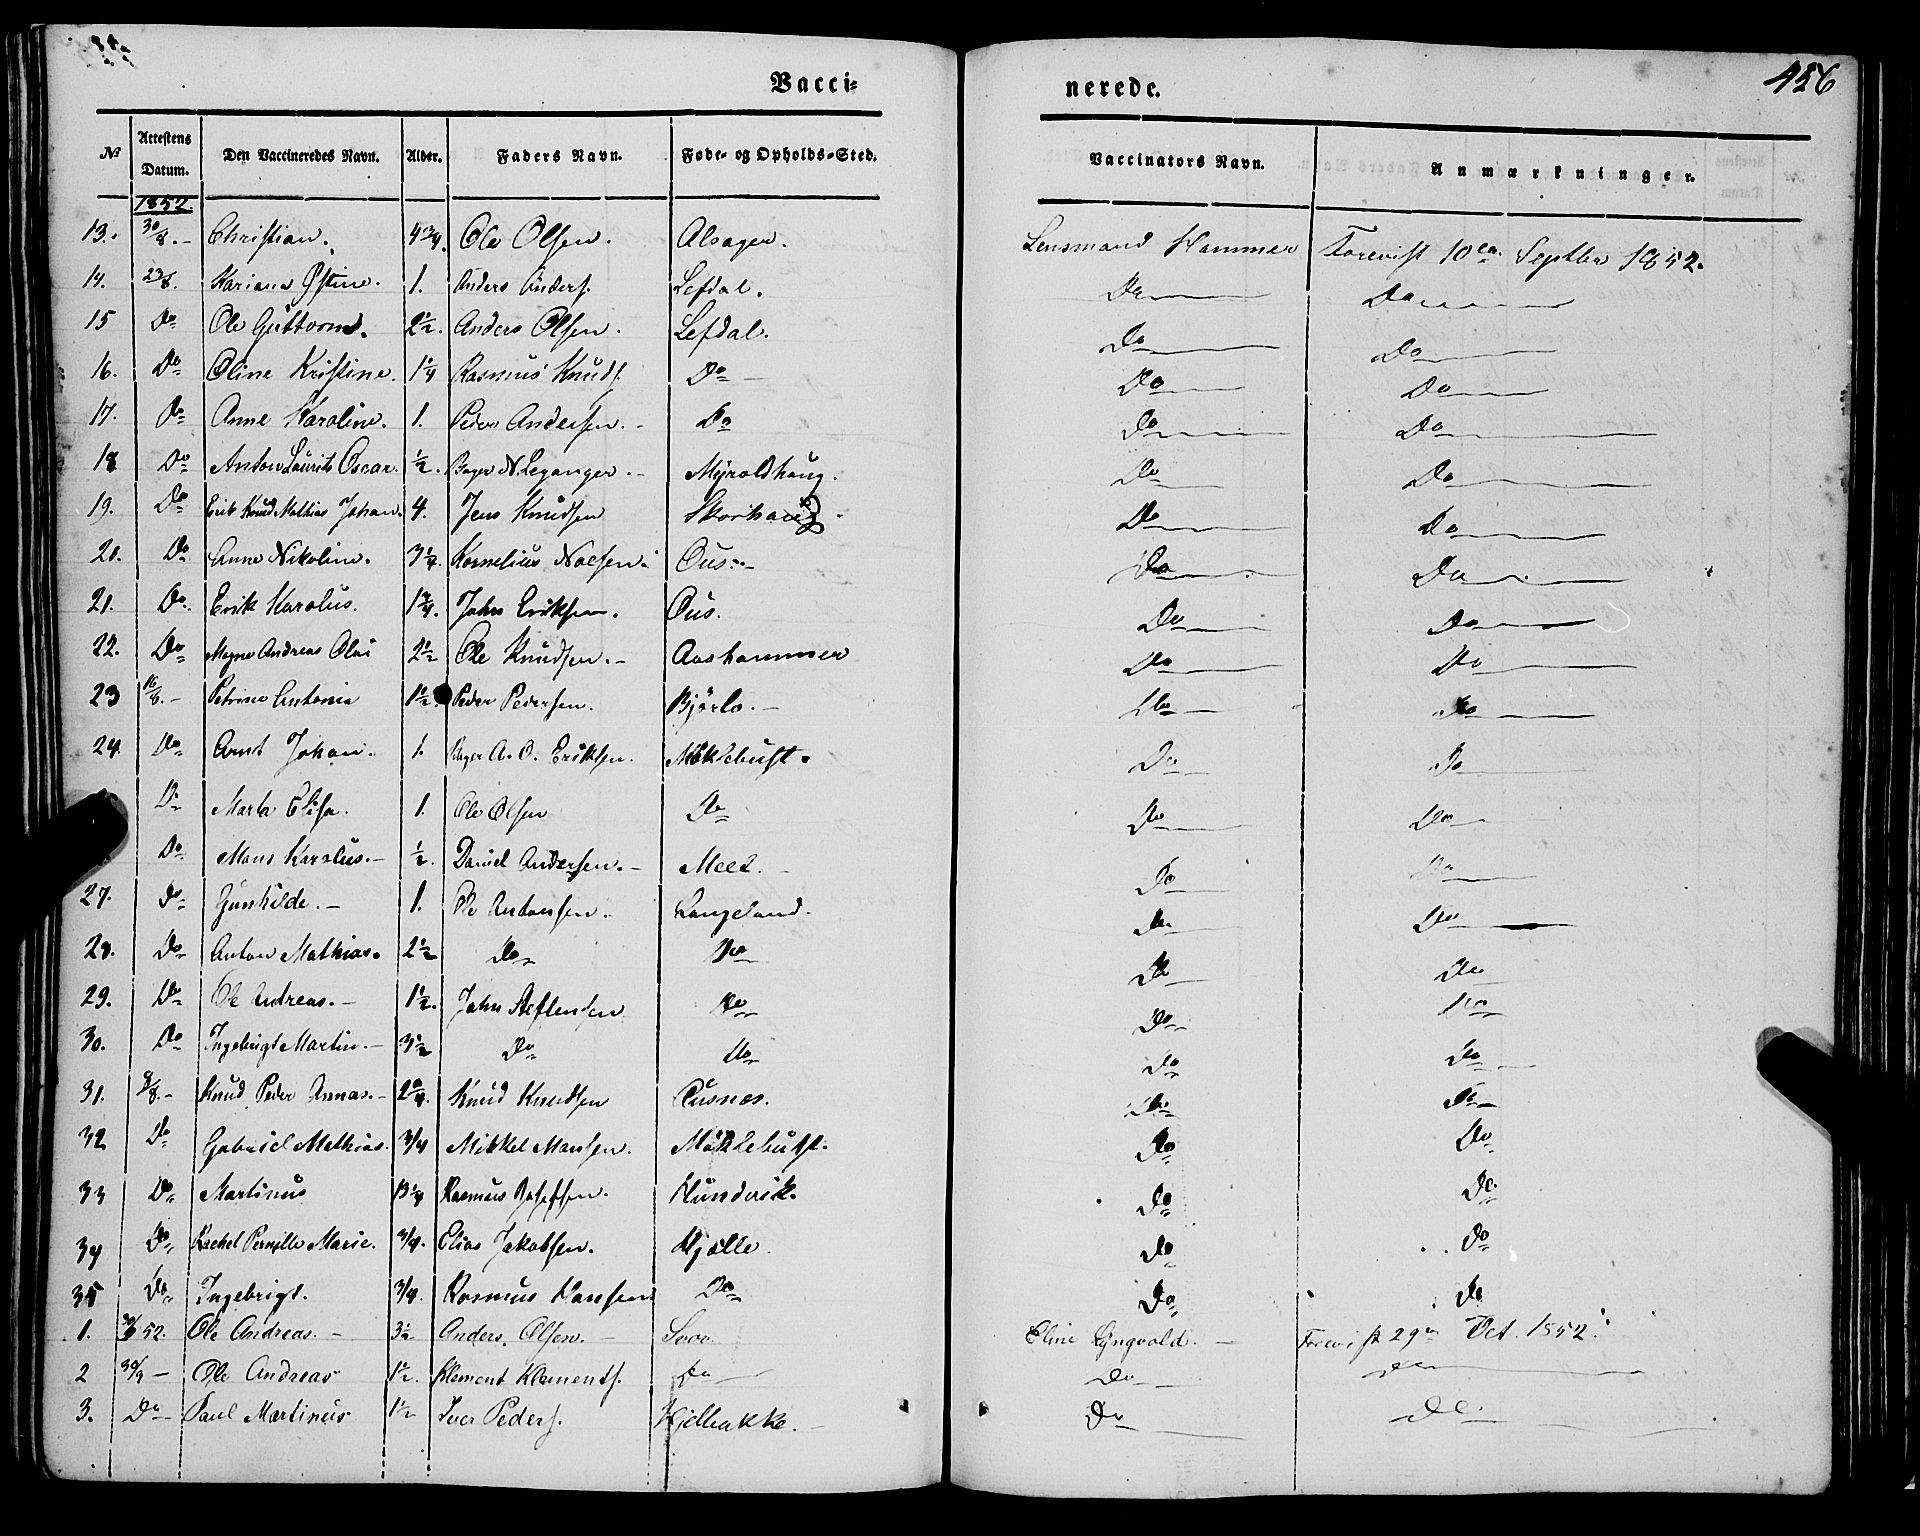 Vaccinerede.
456
№ Attestens Datum. Den Vaccineredes Navn. Alder. Faders Navn. Føde- og Opholds-Sted. Vaccinators Navn. Anmærkninger.
1852.
13. 30/8. Christian. 4 3/4. Ole Olsen. Alsager. Lensmand Hammer Forevist 10de Septbr 1852.
14. 23/8. Kariane Østine. 1. Anders Anders. Lefdal. Do Do
15 Do Ole Guttorm. 2 1/2. Anders Olsen. Lefdal. Do Do
16. Do Oline Kristine. 1 1/4 Rasmus Knuds. Do Do Do
17. Do Anne Karoline. 1. Peder Andersen. Do Do Do
18 Do Anton Laurits Oscar. 1/2. Bager N. Leganger. Myroldhaug. Do Do
19. Do Erik Knud Mathias Johan. 4. Jens Knudsen Skorhaug. Do Do
20. Do Anne Nikoline. 3 1/4. Kornelius Noesen. Ous. Do Do
21. Do Erik Karolus. 1 3/4. John Eriksen. Ous. Do Do
22. Do Magne Andreas Olai 2 1/2 Ole Knudsen. Aashammer Do Do
23 16/8. Petrine Antonia 1 1/2. Peder Pedersen. Bjørlo. Do Do
24. Do Arnt Johan. 1. Bager A. O. Eriksen. Myklebust. Do Do
Do Marta Elisa. 1. Ole Olsen Do Do Do
Do Mons Karolus. 1/2. Daniel Andersen. Meel. Do Do
27. Do Gunhilde. 1. Ole Antonsen. Langeland. Do Do
28. Do Anton Mathias. 2 1/2 Do Do Do Do
29. Do Ole Andreas. 1 1/2. John Steffensen Do Do Do
30. Do Ingebrigt Martin. 3 1/2 Do Do Do Do
31. Knud Peder Annas. Knud Knudsen Ousnes. Do Do
32 Do Gabriel Mathias. 3/4 Mikkel Monsen. Myklebust. Do Do
33 Do Martinus Rasmus Josefsen. Hundvik. Do Do
34 Do Rachel Pernille Marie. 3/4. Elias Jakobsen. Hjelle. Do Do
35 Do Ingebrigt. 3/4. Rasmus Hansen Do Do Do
1. 52. Ole Andreas. 3 1/2 Anders Olsen. Eline Lyngvold. Forevist 29de Oct. 1852.
2 30/9 Ole Andreas 1 1/2. Klement Klements. Do Do Do
3. Do Paul Martinus 1 1/2 Iver Peders. Hjelbakke. Do Do